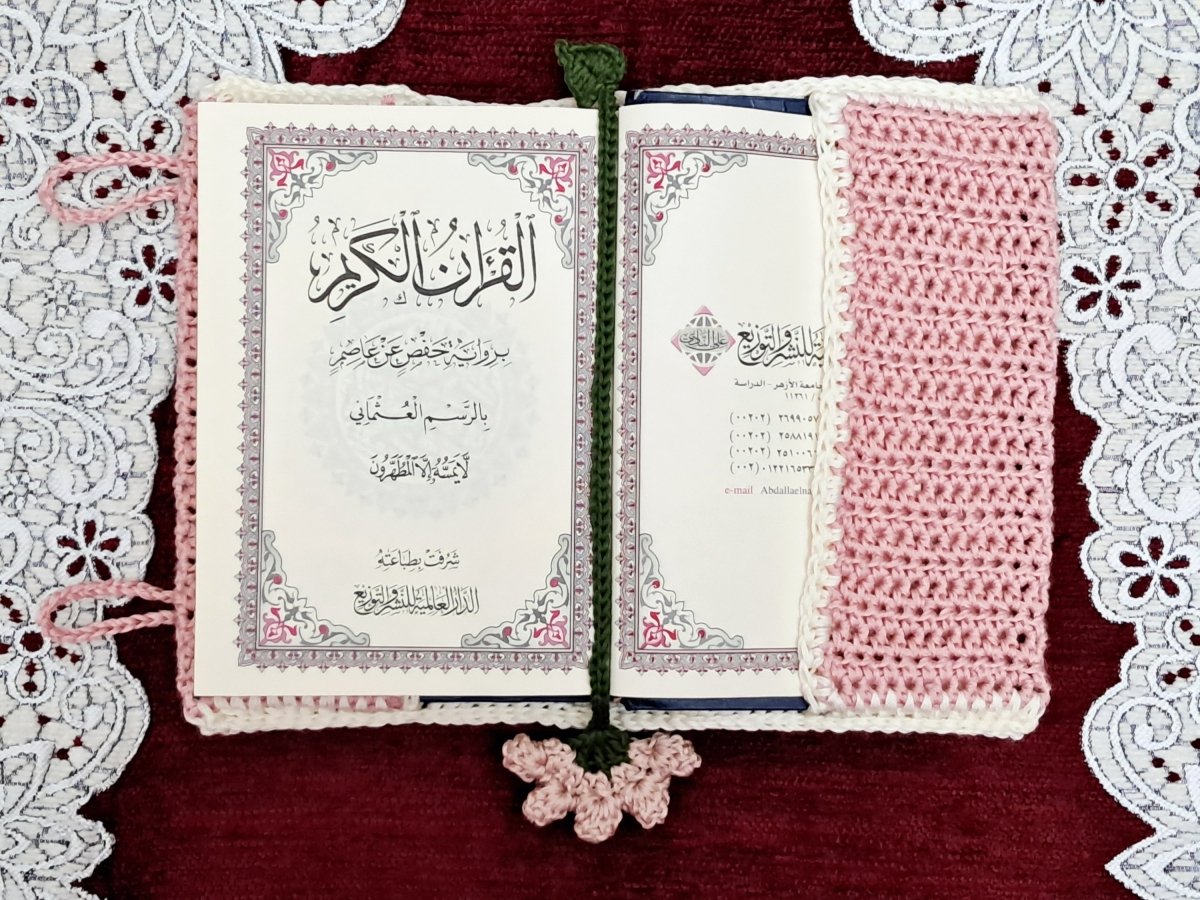 ٱلْقُرْءَانُ ٱلْكَرِيمُ
بِرِوَايَةِ حَفْصٍ عَنْ عَاصِمٍ
بِالرَّسْمِ الْعُثْمَانِي
لَّا يَمَسُّهُ إِلَّا الْمُطَهَّرُونَ
شَرُفَتْ بِطِبَاعَتِهِ
الدَّارُ الْعَالَمِيَّةُ لِلنَّشْرِ وَالتَّوْزِيعِ
لِلنَّشْرِ وَالتَّوْزِيعِ
جامعة الأزهر - الدراسة
١١٣٦١
(٠٠٢٠٢) ٢٦٩٩٠٥
(٠٠٢٠٢) ٢٥٨٨١٩
(٠٠٢٠٢) ٢٥١٠٠٦
(٠٠٢) ٠١٢٢١٦٥٣٣
e-mail Abdallaelna